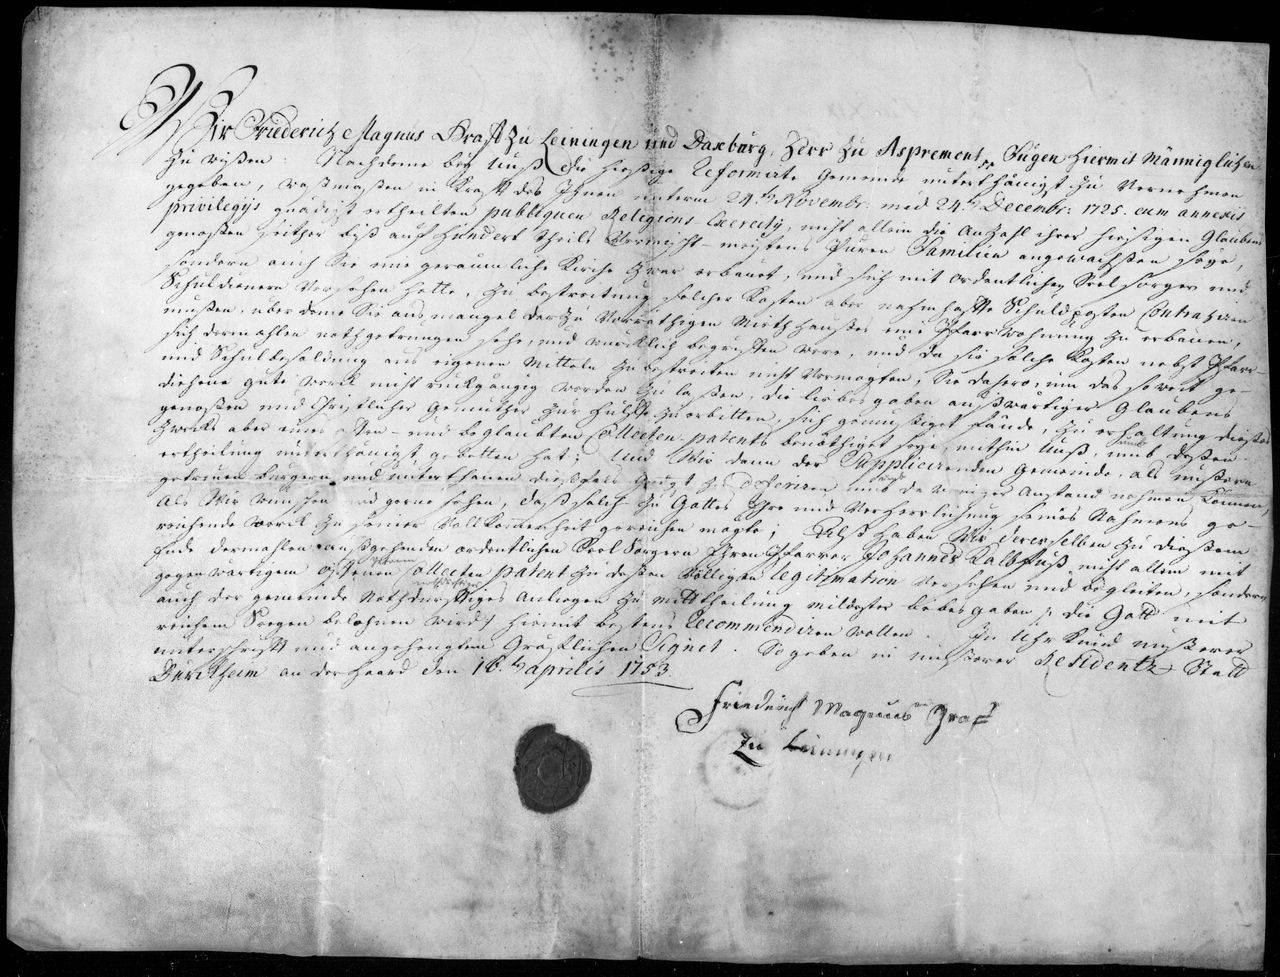 Wir Friederich Magnus Graff zu Leiningen und Daxburg, Herr zu Aspremont pp Fügen Hiermit Männiglichen
zu wißen: Nachdeme beÿ Unß die hießige Reformirte Gemeinde unterthänigst zu Vernehmen
gegeben, waßmaßen in Krafft des Ihnen unterm 24.t Novembr: und 24.t Decembr: 1725. cum annexis
privilegijs gnädigst ertheilten publiquen Religions Exercitij, nicht allein die Anzahl ihrer hiesigen Glaubens
genoßen seither biß auf Hundert theils Vermischt- meistens Puren Familien angewachßen seÿe,
sondern auch Sie eine geraumliche Kirche zwar erbauet, und sich mit ordentlichen Seelsorger und
Schuldienern Versehen hette, zu bestreitung solcher Kosten aber nahmhaffte Schuldposten Contrahiren
mußen, über deme Sie aus mangel der zu Vorräthigen Wirthhaußes eine Pfarr Wohnung zu erbauen,
sich dermahlen nothgetrungen sehe, und würcklich begriffen were, und da sie solche Kosten nebst Pfarr-
und Schulbesoldung aus eigenen Mitteln zu bestreiten nicht Vermögten, Sie dahero, um das so weit ge-
diehene gute werck nicht rückgängig werden zu laßen, die liebes gaben außwärtiger Glaubens
genoßen und Christlicher Gemüther zur Hülffe zu erbitten, sich gemüßiget fände, zu erhaltung dießes
Zwecks aber eines offen- und beglaubten Collecten-patents benöthiget seÿe mithin Unß, umb deßen
ertheilung unterthänigst gebetten hat; Und Wir dann der Supplicirenden Gemeinde, als unßern
getreuen burgern und unterthanen dießfals zu deferiren umb so weniger Anstand nehmen können,
Als Wir wünschen und gerne sehen, daß solch zu Gottes Ehre und Verherrlichung seines Nahmens ge-
reichende werck zu seiner Vollkommenheit gereichen mögte; Alß Haben Wir derselben zu dießem
Ende dermahlen außgehenden ordentlichen Seel Sorgern Ehren Pfarrer Johannes Kalbfuß, nicht allein mit
gegenwärtigem offenen Collecten patent zu deßen Völligen legitimation Versehen und begleiten, sondern
auch der gemeinde Nothdürfftiges Anliegen zu mittheilung mildester liebes gaben /: die Gott mit
reichem Seegen belohnen wird :/ hiermit bestens Recommendiren wollen. In Uhrkund unßerer
unterschrifft und angehengtem Gräfflichen Signet. So geben in unßerer Residentz Statt
Dürckheim an der Haard den 16.t aprilis 1753.
Friederich Magnus Graf
zu Leiningen